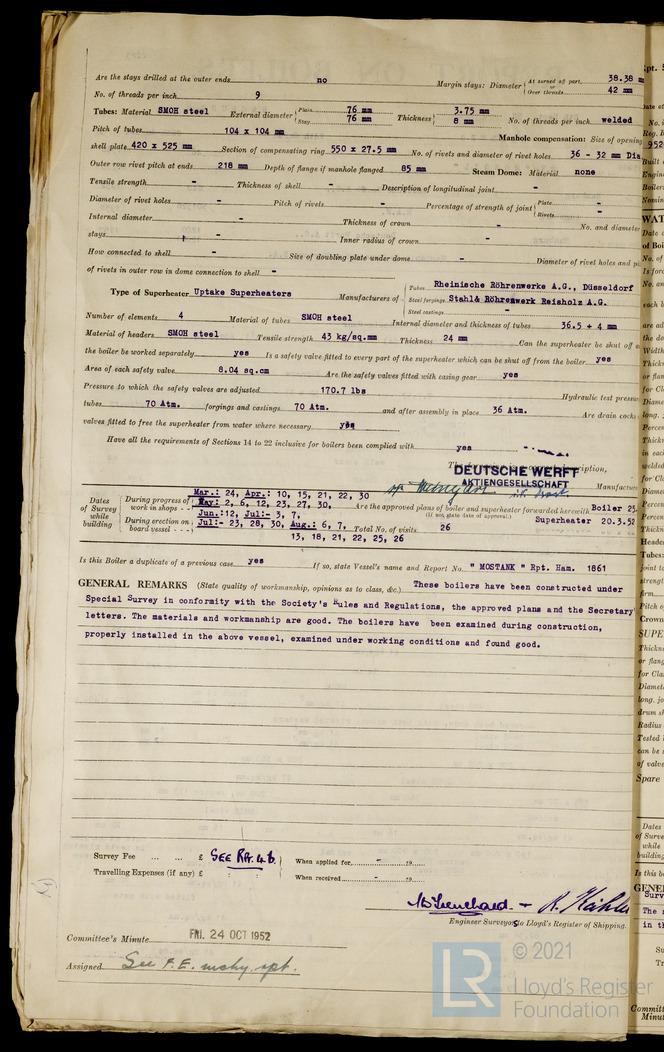 Are the stays drilled at the outer ends no Margin stays: Diameter At turned off part. or Over threads 38.38 m 42 mm
No. of threads per inch. 9
Tubes: Material SMOH steel External diameter Plain 76 mm Stay 76 mm Thickness 3.75 mm 8 mm No. of threads per inch. welded
Pitch of tubes 104 x 104 mm Manhole compensation: Size of opening
shell plate 420 x 525 mm Section of compensating ring 550 x 27.5 mm No. of rivets and diameter of rivet holes 36 - 32 mm Dia
Outer row rivet pitch at ends 218 mm Depth of flange if manhole flanged 85 mm Steam Dome: Material none
Tensile strength - Thickness of shell - Description of longitudinal joint -
Diameter of rivet holes - Pitch of rivets - Percentage of strength of joint Plate - Rivets -
Internal diameter - Thickness of crown - No. and diameter
stays - Inner radius of crown -
How connected to shell - Size of doubling plate under dome - Diameter of rivet holes and pi
of rivets in outer row in dome connection to shell -
Type of Superheater Uptake Superheaters Manufacturers of Tubes Rheinische Röhrenwerke A.G., Düsseldorf
Steel forgings Stahl& Röhrenwerk Reisholz A.G.
Steel castings -
Number of elements 4 Material of tubes SMOH steel Internal diameter and thickness of tubes 36.5 + 4 mm
Material of headers SMOH steel Tensile strength 43 kg/sq.mm Thickness 24 mm Can the superheater be shut off a
the boiler be worked separately yes Is a safety valve fitted to every part of the superheater which can be shut off from the boiler yes
Area of each safety valve 8.04 sq.cm Are the safety valves fitted with easing gear yes
Pressure to which the safety valves are adjusted 170.7 lbs Hydraulic test pressu
tubes 70 Atm. forgings and castings 70 Atm. and after assembly in place 36 Atm. Are drain cocks
valves fitted to free the superheater from water where necessary yes
Have all the requirements of Sections 14 to 22 inclusive for boilers been complied with yes
DEUTSCHE WERFT
AKTIENGESELLSCHAFT
Manufactur
Dates of Survey while building During progress of work in shops - - Mar.: 24, Apr.: 10, 15, 21, 22, 30
May: 2, 6, 12, 23, 27, 30, Are the approved plans of boiler and superheater forwarded herewith Boiler 25
Jun.:12, Jul:- 3, 7, (If not, state date of approval.)
During erection on board vessel - - - Jul:- 23, 28, 30, Aug.: 6, 7, Total No. of visits 26 Superheater 20.3.52
13, 18, 21, 22, 25, 26
Is this Boiler a duplicate of a previous case yes If so, state Vessel's name and Report No. " MOSTANK " Rpt. Ham. 1861
GENERAL REMARKS (State quality of workmanship, opinions as to class, &c.) These boilers have been constructed under
Special Survey in conformity with the Society's Rules and Regulations, the approved plans and the Secretary'
letters. The materials and workmanship are good. The boilers have been examined during construction,
properly installed in the above vessel, examined under working conditions and found good.
Survey Fee ... ... £ SEE RPT. 4.b. When applied for - 19
Travelling Expenses (if any) £ : : When received - 19
Engineer Surveyors to Lloyd's Register of Shipping.
Committee's Minute FRI. 24 OCT 1952
Assigned See F.E. mchy. rpt.
© 2021
LR Lloyd's Register
Foundation